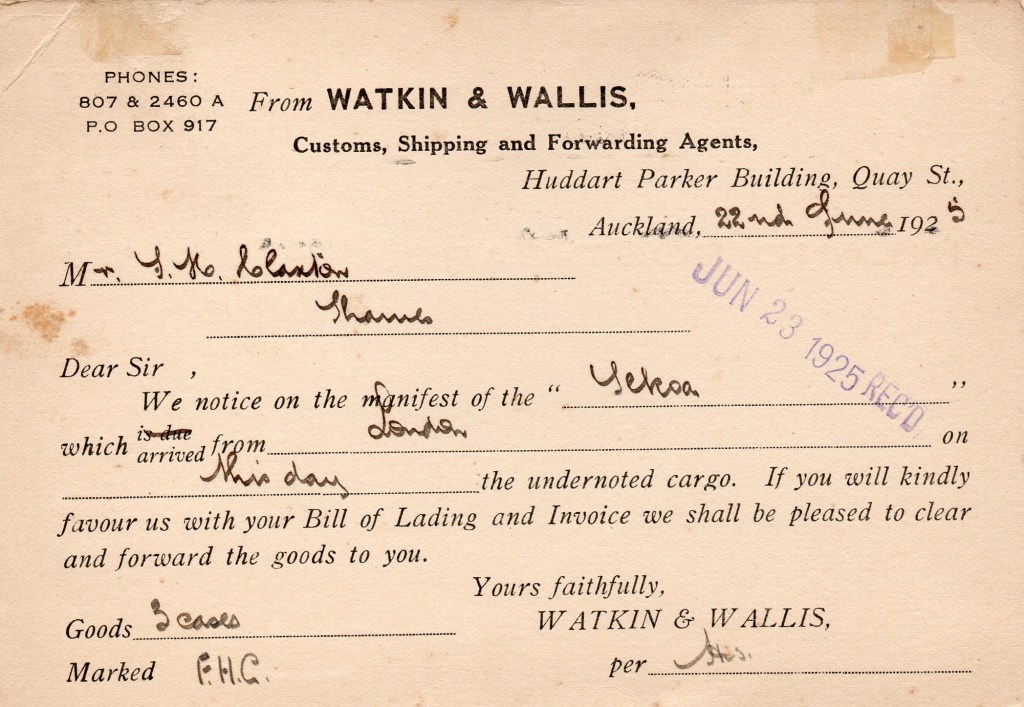 PHONES:
807 & 2460 A
P.O BOX 917
From WATKIN & WALLIS,
Customs, Shipping and Forwarding Agents,
Huddart Parker Building, Quay St.,
Auckland, 22nd June 1925
Mr. Claxton
Thames
JUN 23 1925 REC'D
Dear Sir ,
We notice on the manifest of the " "
which is due arrived from London on
this day the undernoted cargo. If you will kindly
favour us with your Bill of Lading and Invoice we shall be pleased to clear
and forward the goods to you.
Yours faithfully,
WATKIN & WALLIS,
Goods 3 cases
Marked F.H.C.
per